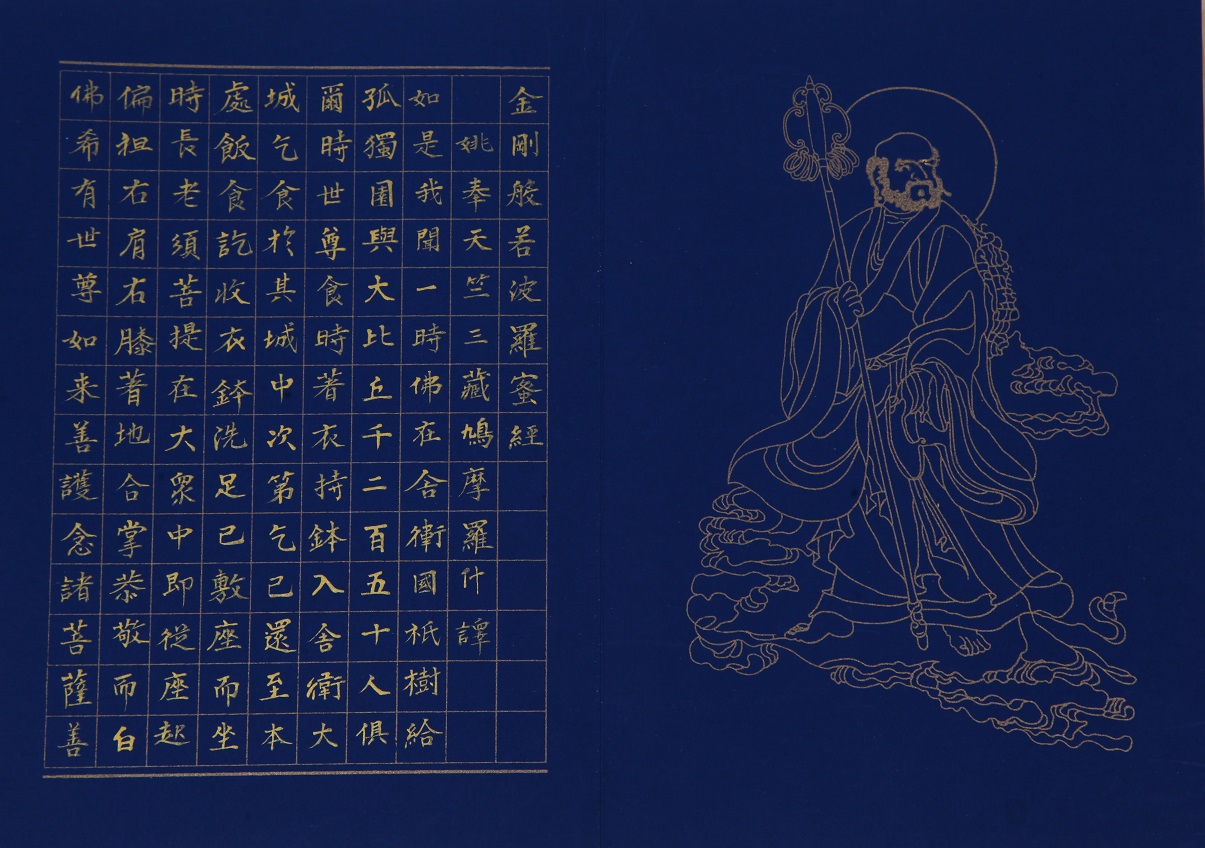 金剛般若波羅蜜經
姚奉天竺三藏鳩摩羅什譯
如是我聞一時佛在舍衛國祇樹給
孤獨園與大比丘千二百五十人俱
爾時世尊食時著衣持鉢入舍衛大
城乞食於其城中次第乞已還至本
處飯食訖收衣鉢洗足已敷座而坐
時長老須菩提在大眾中即從座起
偏担右肩右膝著地合掌恭敬而白
佛希有世尊如来善護念諸菩薩善